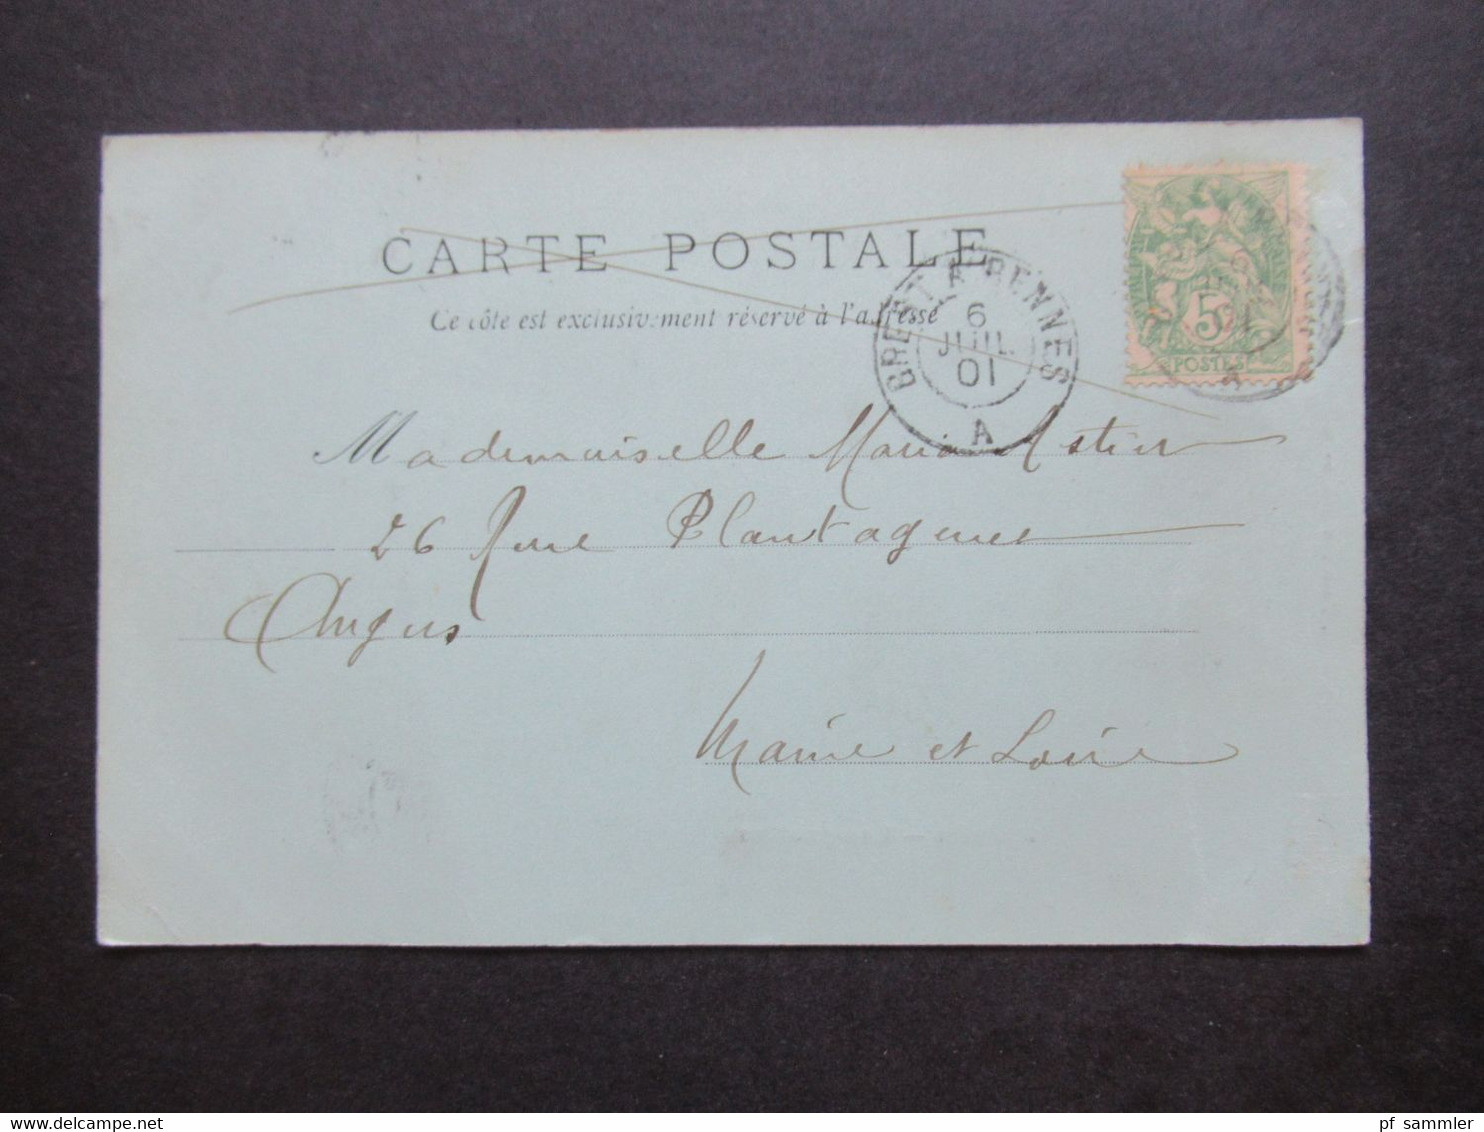 CARTE POSTALE
Ce côte est exclusivement réservé à l'adresse
BREST A RENNES
6
JUIL.
01
A
5
POSTES
Mademoiselle Maria Astier
26 Rue Plantagenet
Angers
Maine et Loire
pf_sammler